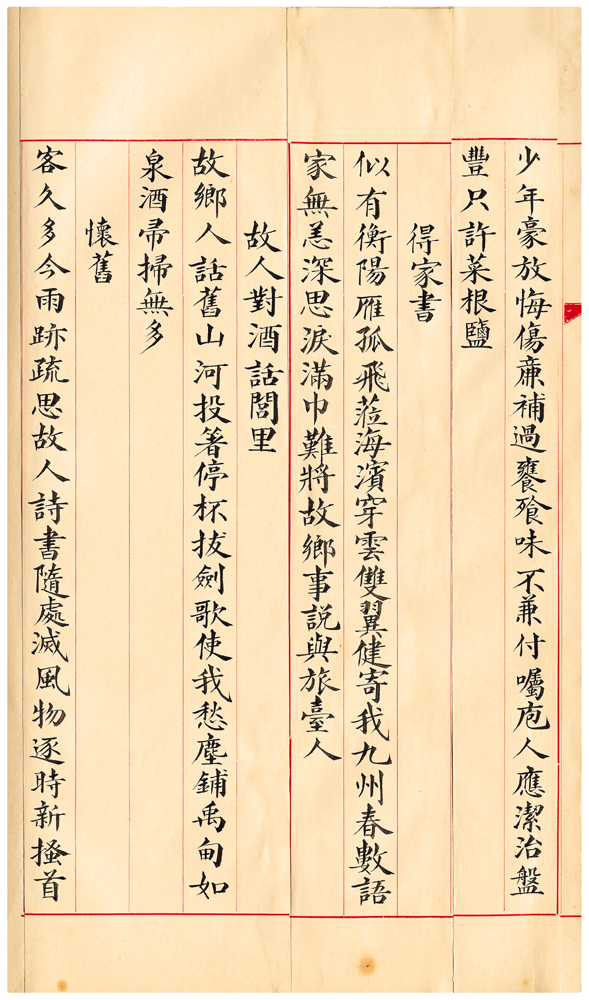 少年豪放悔傷廉補過饔飱味不兼付囑庖人應潔治盤
豐只許菜根鹽
得家書
似有衡陽雁孤飛蒞海濱穿雲雙翼健寄我九州春數語
家無恙深思淚滿巾難將故鄉事說與旅臺人
故人對酒話閭里
故鄉人話舊山河投箸停杯拔劍歌使我愁塵鋪禹甸如
泉酒帚掃無多
懷舊
客久多今雨跡疏思故人詩書隨處滅風物逐時新搔首